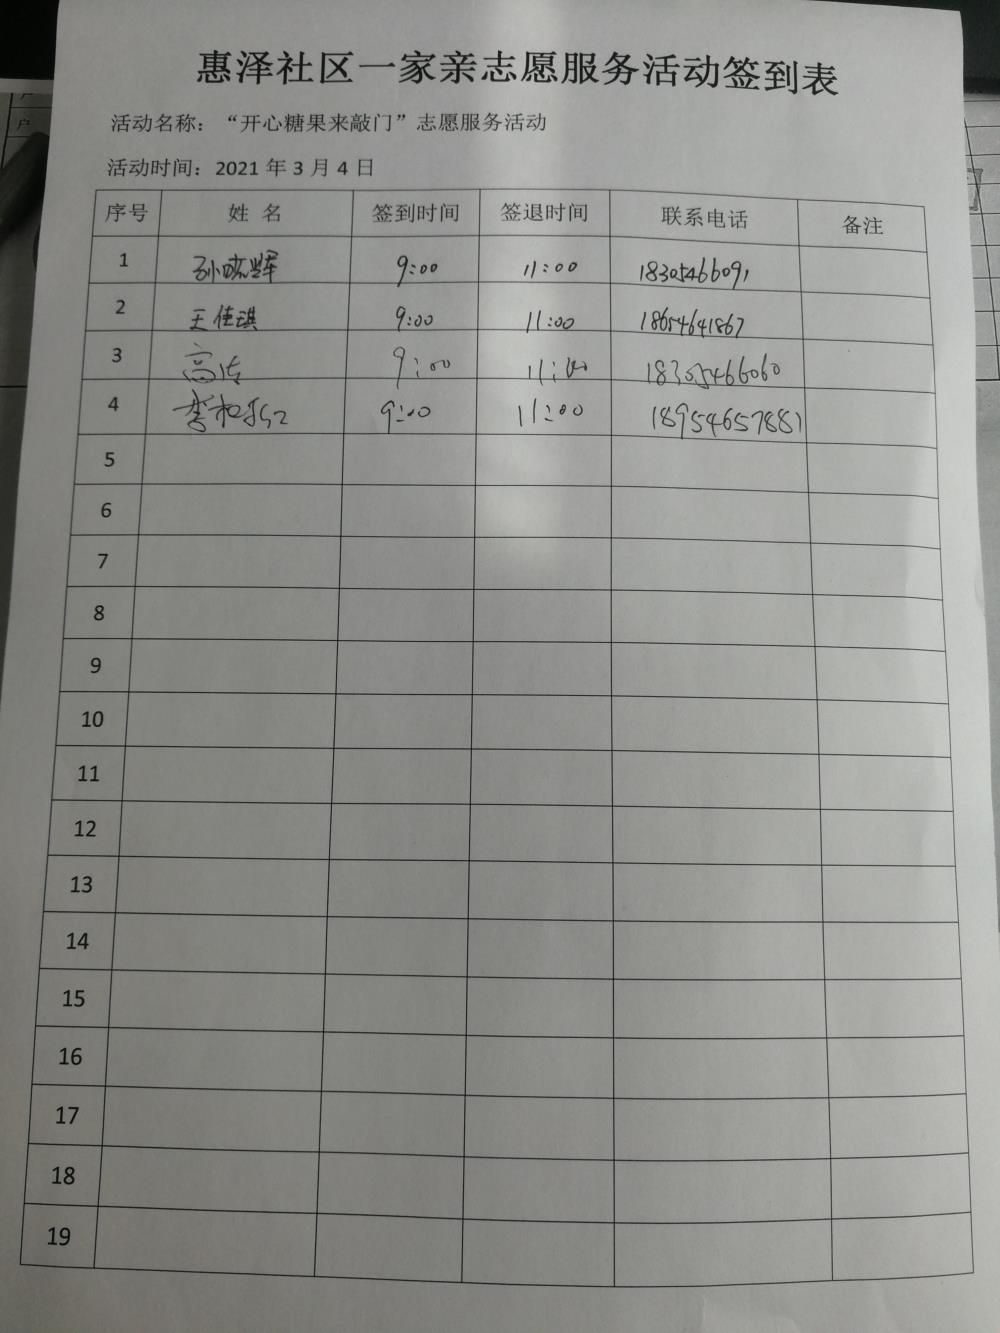 惠泽社区一家亲志愿服务活动签到表
活动名称：“开心糖果来敲门”志愿服务活动
活动时间：2021 年 3 月 4 日
序号 姓 名 签到时间 签退时间 联系电话 备注
1 9:00 11:00 18305466091
2 王佳琪 9:00 11:00 18654641867
3 高洁 9:00 11:00 18305466060
4 9:00 11:00 18954657881
5
6
7
8
9
10
11
12
13
14
15
16
17
18
19